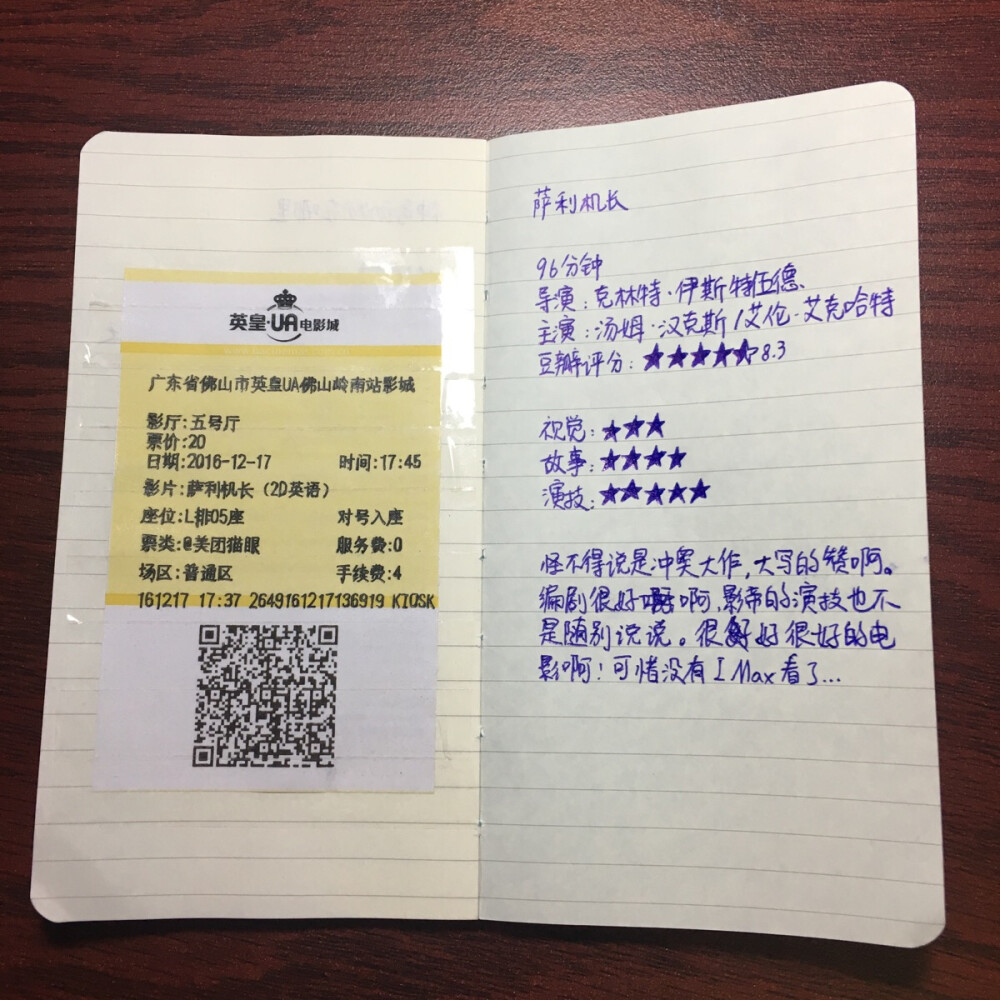 英皇·UA电影城
广东省佛山市英皇UA佛山岭南站影城
影厅:五号厅
票价:20
日期:2016-12-17 时间:17:45
影片:萨利机长（2D英语）
座位:L排05座 对号入座
票类:@美团猫眼 服务费:0
场区:普通区 手续费:4
161217 17:37 2649161217136919 KIOSK
萨利机长
96分钟
导演：克林特·伊斯特伍德
主演：汤姆·汉克斯/艾伦·艾克哈特
豆瓣评分：★★★★★8.3
视觉：★★★
故事：★★★★
演技：★★★★★
怪不得说是冲奥大作，大写的赞啊。
编剧很好啊，影帝的演技也不
是随别说说。很好好很好的电
影啊！可惜没有I Max看了...